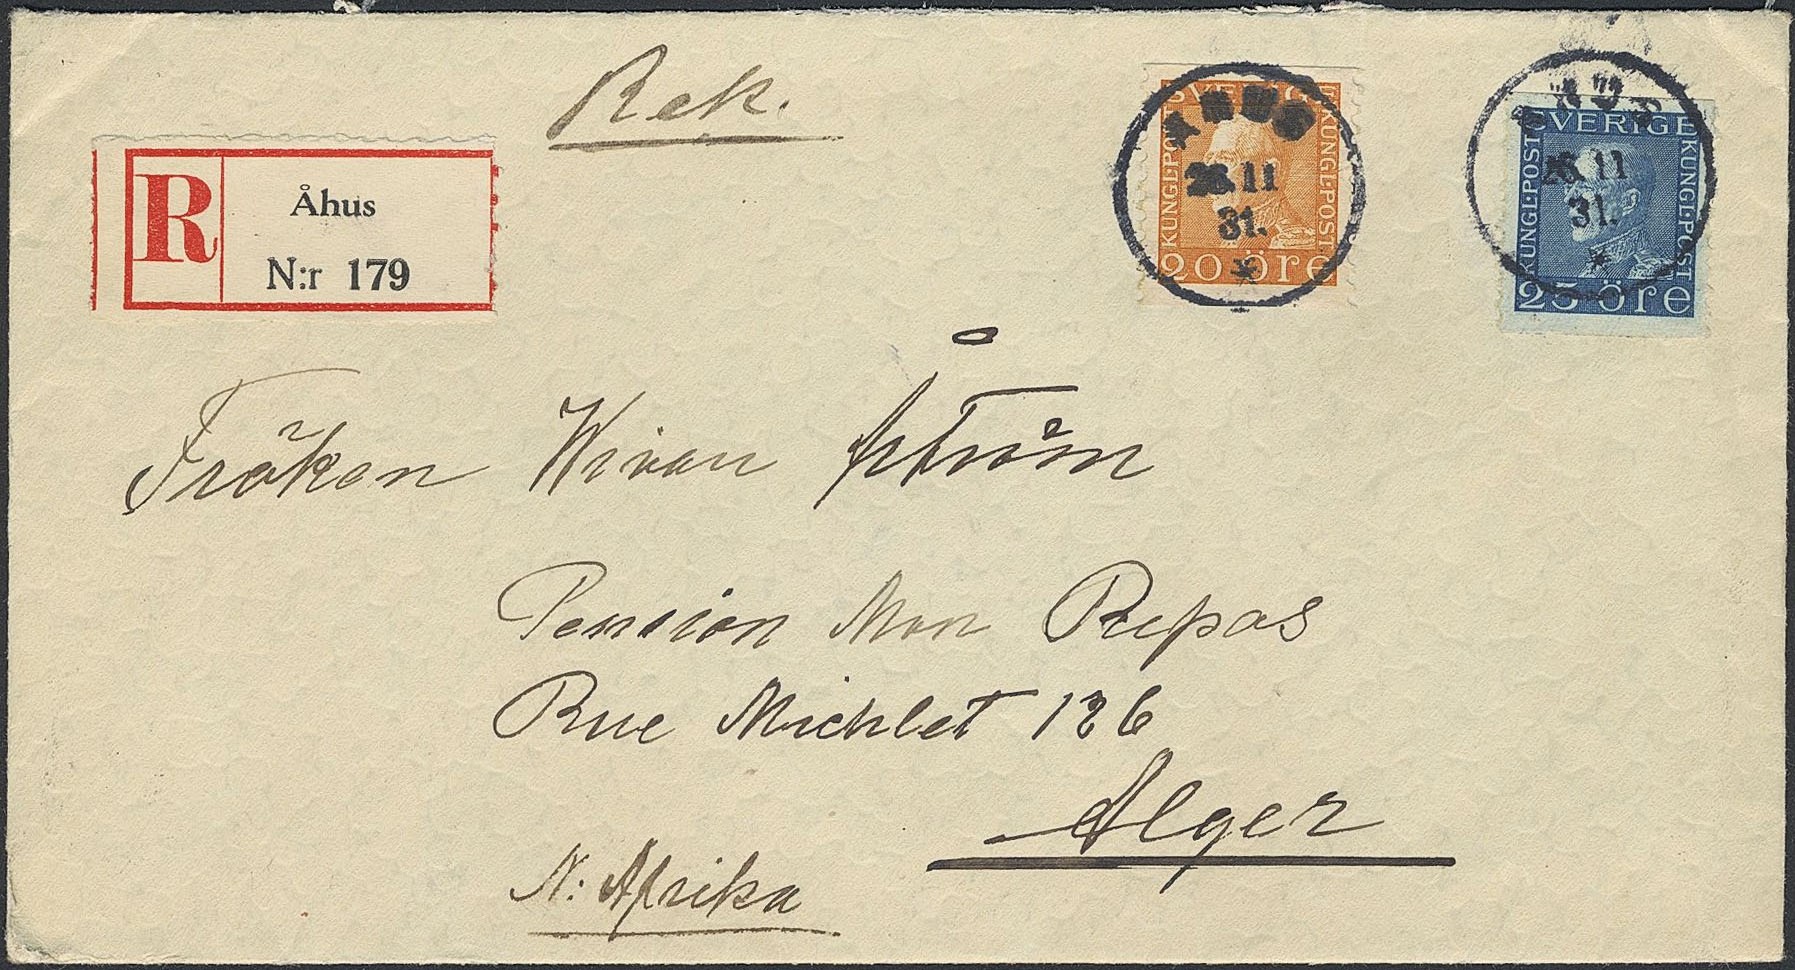 Rek.
R
Åhus
N:r 179
SVERIGE
KUNGL·POST
KUNGL·POST
20 öre
ÅHUS
26.11
31.
SVERIGE
KUNGL·POST
KUNGL·POST
25 öre
ÅHUS
26.11
31.
Fröken Wivan Åström
Pension Mon Repos
Rue Michlet 126
Alger
N: Afrika